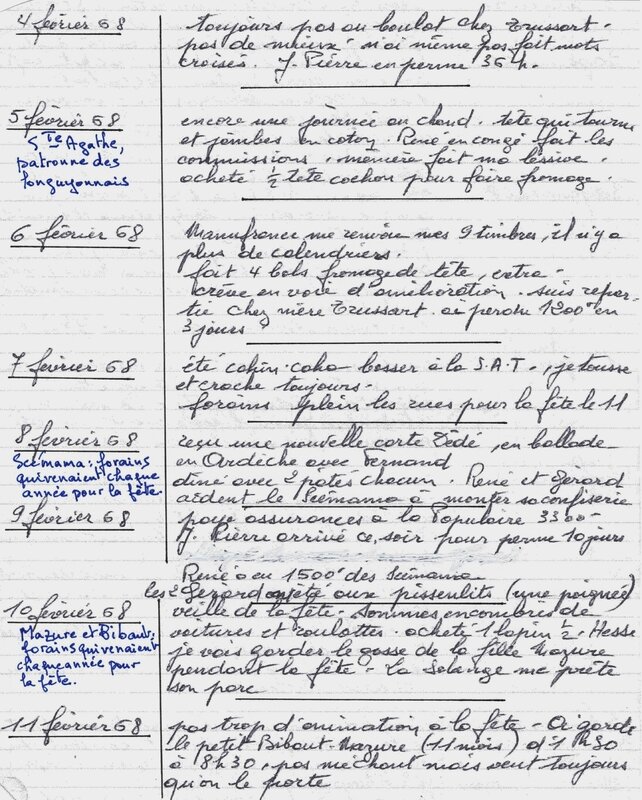 4 février 68
toujours pas au boulot chez Trussart.
pas de mieux. n'ai même pas fait mots
croisés. J. Pierre en perme 36 h.
5 février 68
Ste Agathe,
patronne des
longuyonnais
encore une journée au chaud. tête qui tourne
et jambes en coton. René en congé fait les
commissions. mémère fait ma lessive.
acheté 1/2 tête cochon pour faire fromage.
6 février 68
Manufrance me renvoie mes 9 timbres, il n'y a
plus de calendriers.
fait 4 bols fromage de tête, extra.
crève en voie d'amélioration. suis repar-
tie chez mère Trussart. ai perdu 1200 en
3 jours
7 février 68
été cahin-caha bosser à la S.A.T., je tousse
et crache toujours.
forains plein les rues pour la fête le 11
8 février 68
Scémama: forains
qui venaient chaque
année pour la fête.
reçu une nouvelle carte Dédé, en ballade
en Ardèche avec Fernand
dîné avec 2 potes chacun. René et Gérard
aident le Scémama à monter sa confiserie
9 février 68
payé assurances à la Populaire 3300
J. Pierre arrivé ce soir pour perme 10 jours
René a eu 1500 des Scémama
10 février 68
Mazure et Bibaut:
forains qui venaient
chaque année pour
la fête.
les 2 Gérard été aux pissenlits (une poignée)
veille de la fête. Sommes encombrés de
voitures et roulottes. acheté 1 lapin 1/2. Hesse
je vais garder le gosse de la fille Mazure
pendant la fête - la Solange me prête
son parc
11 février 68
pas trop d'animation à la fête - ai gardé
le petit Bibaut-Mazure (11 mois) d'1 h 30
à 8 h 30, pas méchant mais veut toujours
qu'on le porte